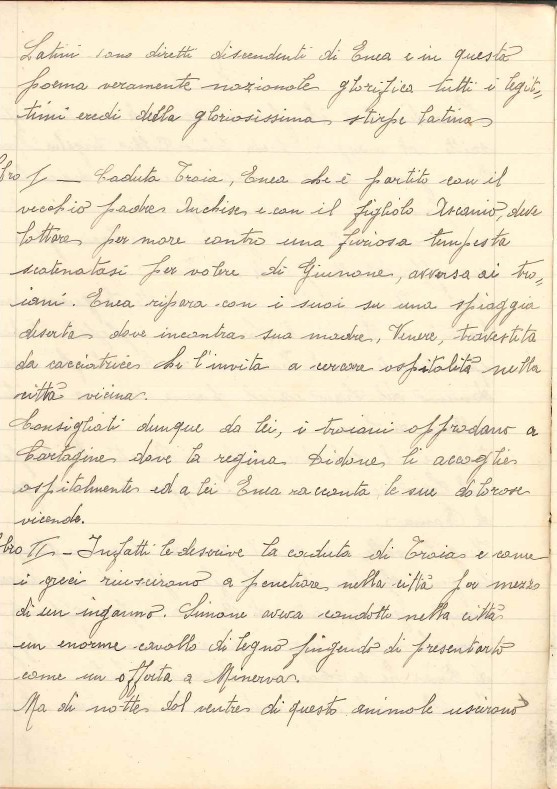 Latini sono diretti discendenti di Enea e in questo
poema veramente nazionale glorifica tutti i legit-
timi eredi della gloriosissima stirpe latina
Libro I – Caduta Troia, Enea che è partito con il
vecchio padre Anchise e con il figliolo Ascanio, deve
lottare per mare contro una furiosa tempesta
scatenatasi per volere di Giunone, avversa ai tro-
iani. Enea ripara con i suoi su una spiaggia
deserta dove incontra sua madre, Venere, travestita
da cacciatrice che l'invita a cercare ospitalità nella
città vicina.
Consigliati dunque da lei, i troiani approdano a
Cartagine dove la regina Didone li accoglie
ospitalmente ed a lei Enea racconta le sue dolorose
vicende.
Libro II – Infatti le descrive la caduta di Troia e come
i greci riuscirono a penetrare nella città per mezzo
di un inganno. Simone aveva condotto nella città
un enorme cavallo di legno fingendo di presentarlo
come un offerta a Minerva.
Ma di notte dal ventre di questo animale uscirono